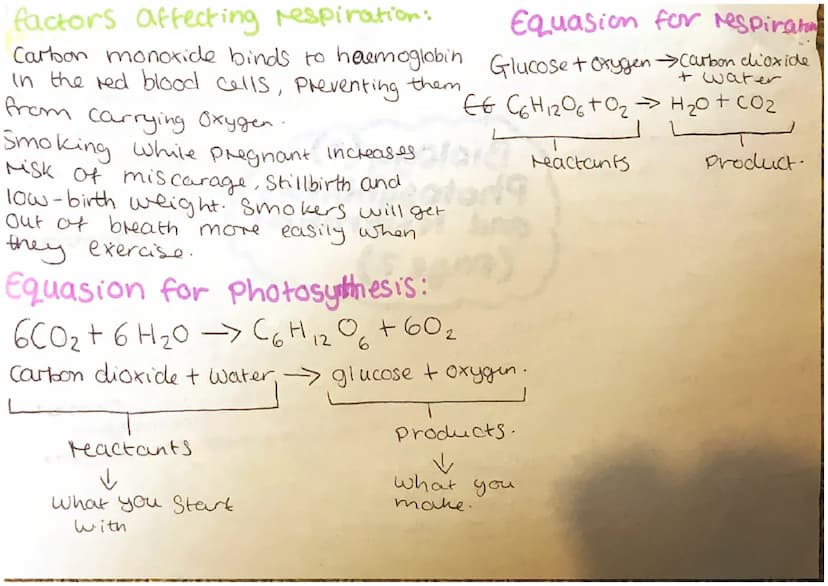 factors affecting respiration:
Carbon monoxide binds to haemoglobin
in the red blood cells, preventing them
from carrying oxygen.
Smoking while pregnant increases
risk of miscarage, stillbirth and
low-birth weight. Smokers will get
out of breath more easily when
they exercise.
Equasion for respiration
Glucose + oxygen → carbon dioxide
+ water
C₆H₁₂O₆ + O₂ → H₂O + CO₂
reactants product.
Equasion for photosythesis:
6CO₂ + 6H₂O → C₆H₁₂O₆ + 6O₂
carbon dioxide + water → glucose + oxygen.
reactants products.
↓ ↓
What you start what you
with make.